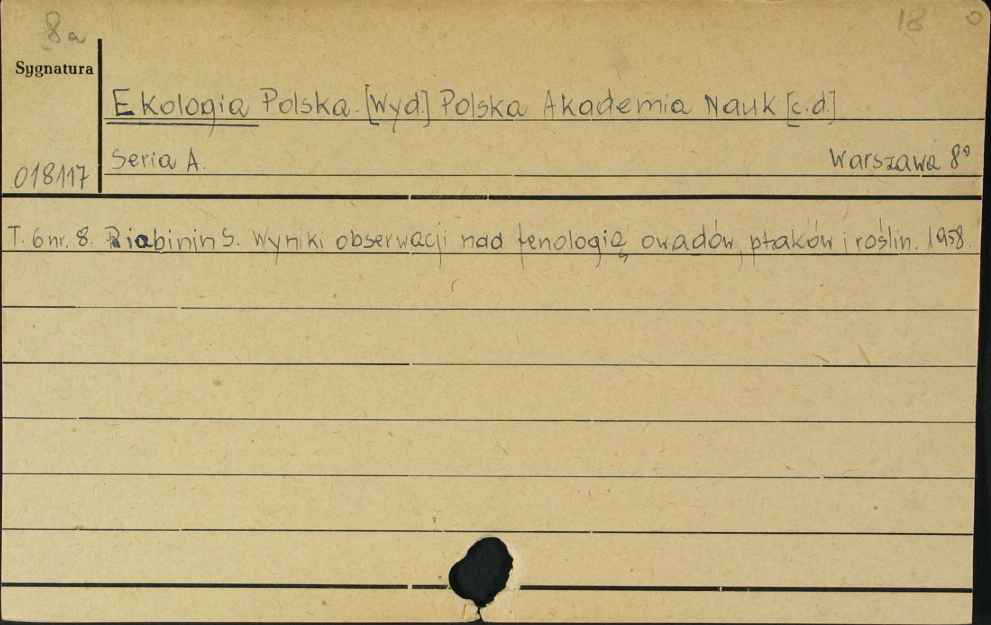 8a
18
Sygnatura
Ekologia Polska. [Wyd] Polska Akademia Nauk [c.d]
Seria A. Warszawa 8°
018117
T. 6 nr. 8. Riabinin S. Wyniki obserwacji nad fenologią owadów, ptaków i roślin. 1958.